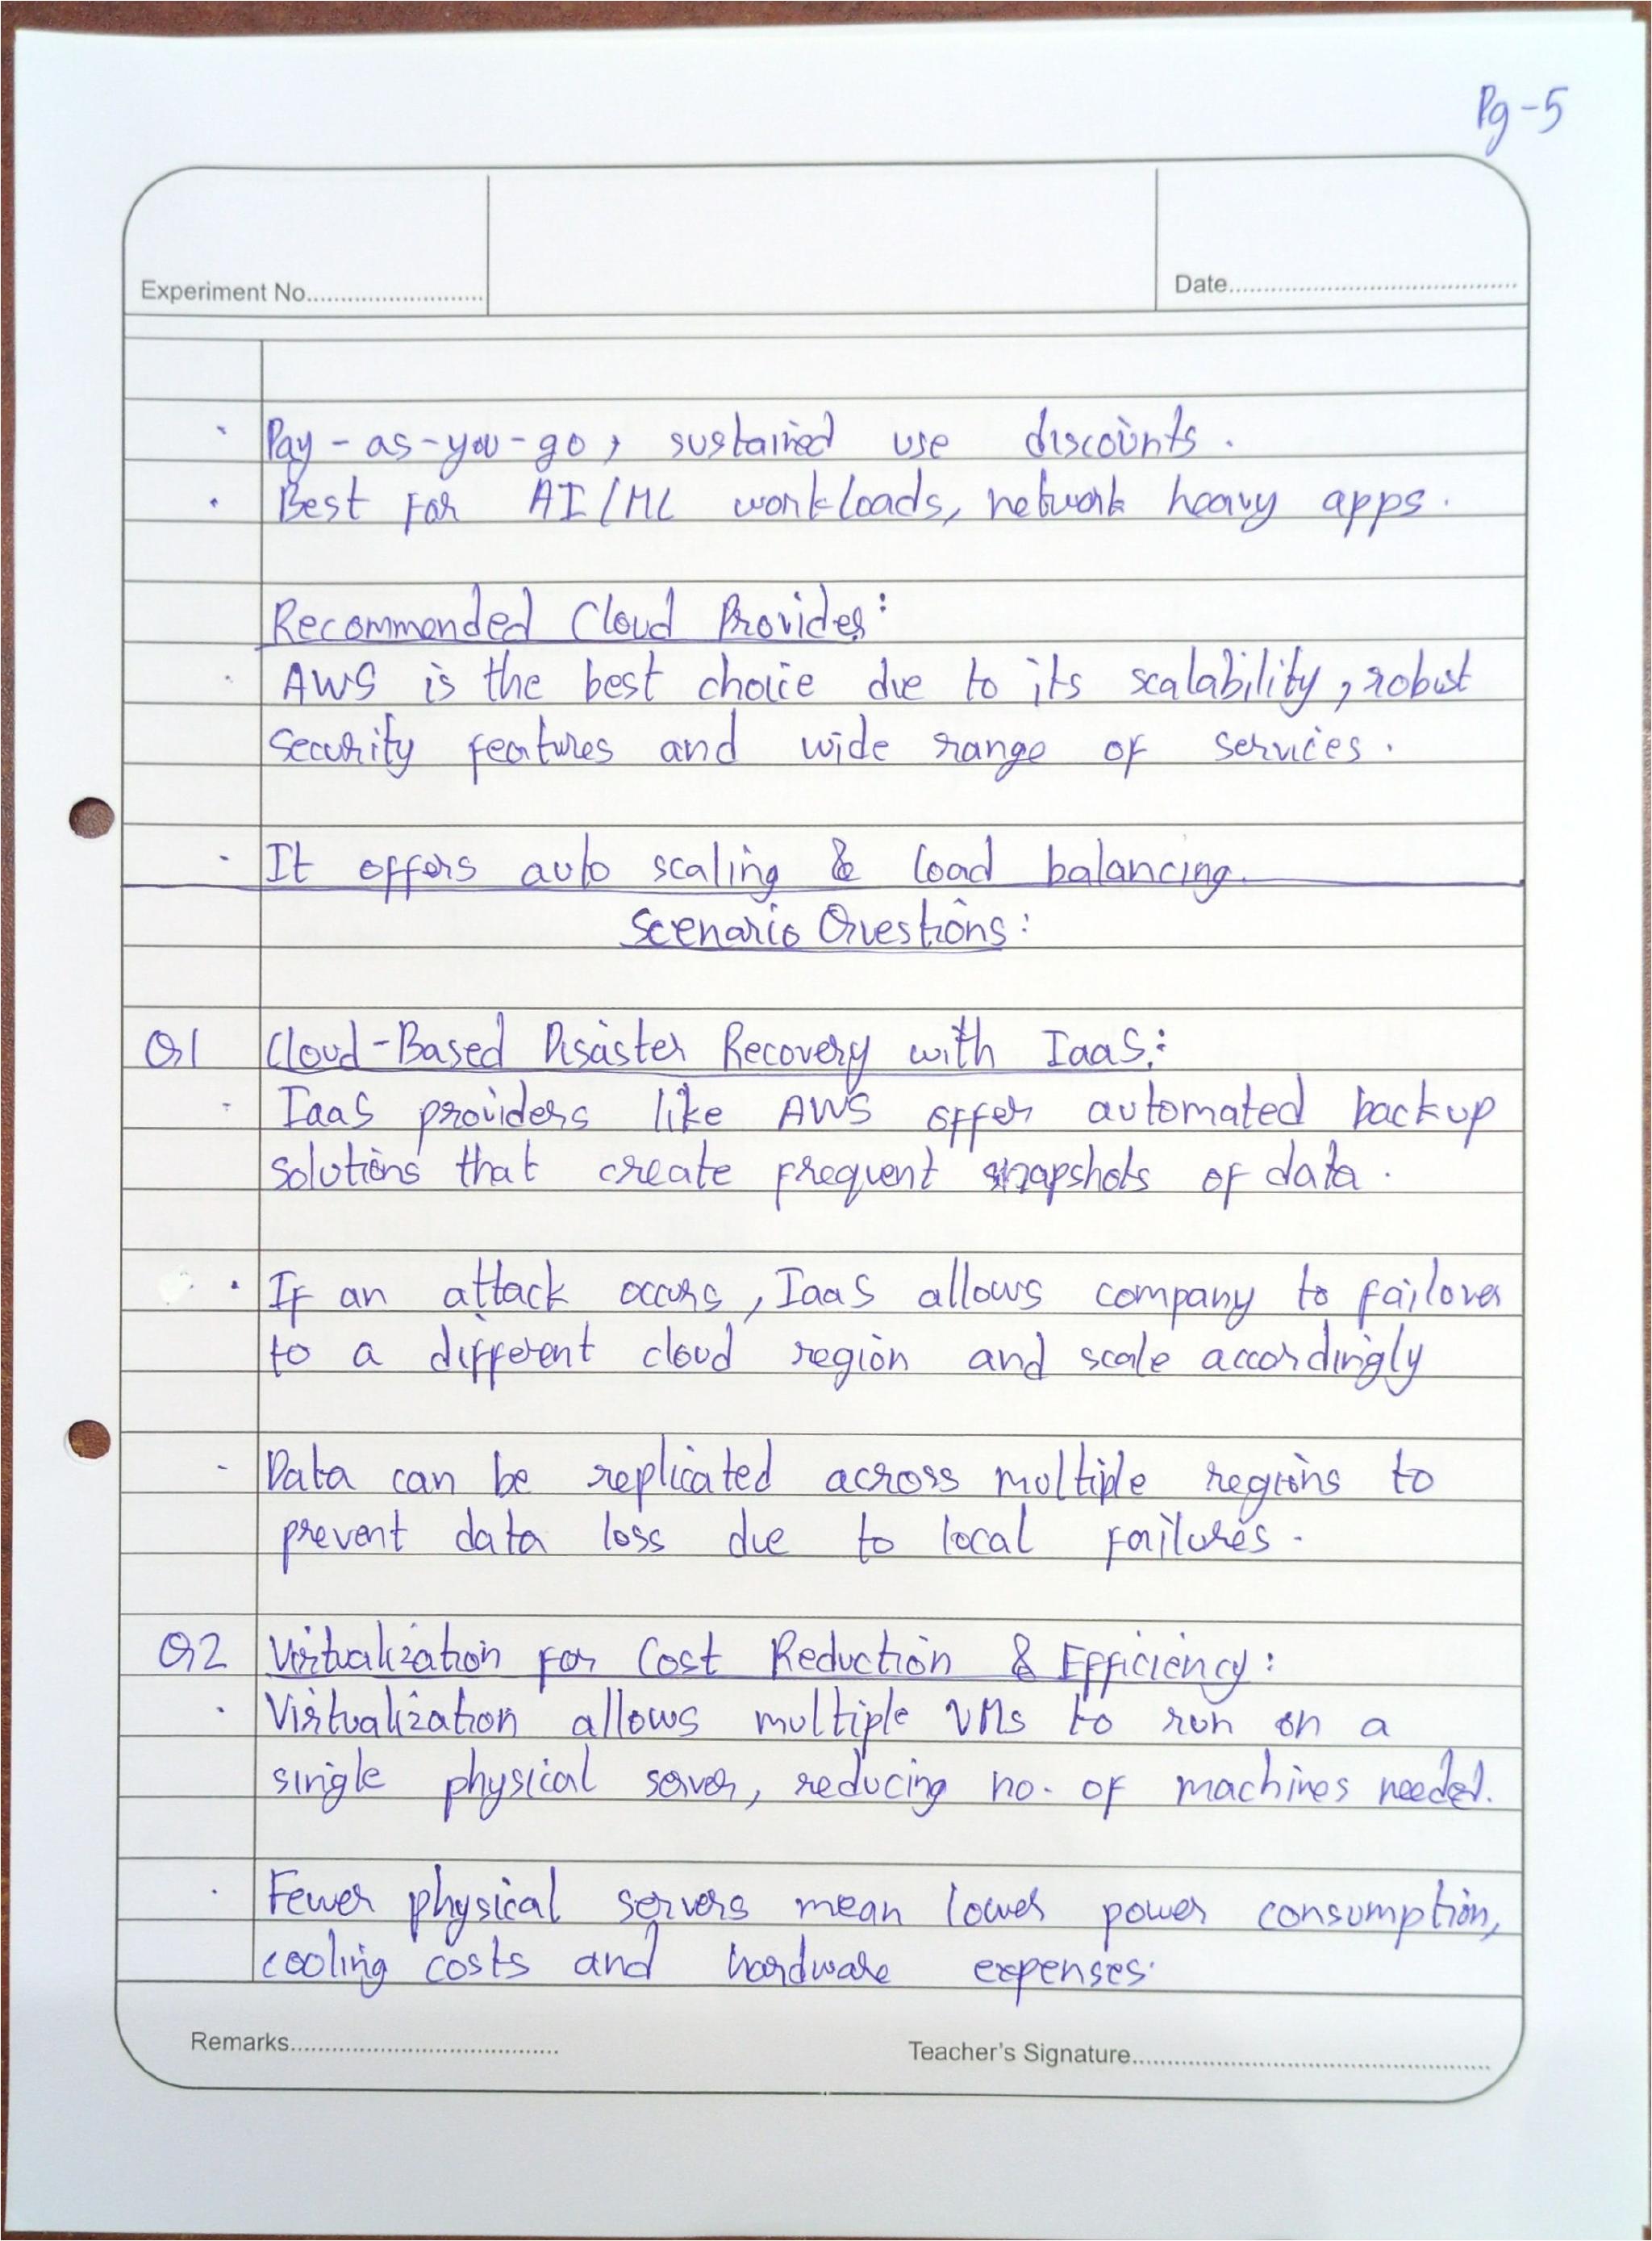 Pg-5
Experiment No.
Date
· Pay-as-you-go, sustained use discounts.
· Best for AI/ML workloads, network heavy apps.
Recommended Cloud Provides:
· AWS is the best choice due to its scalability, robust
security features and wide range of services.
- It offers auto scaling & load balancing.
Scenario Questions:
Q1 Cloud-Based Disaster Recovery with IaaS:
- IaaS providers like AWS offer automated backup
solutions that create frequent snapshots of data.
· If an attack occurs, IaaS allows company to failover
to a different cloud region and scale accordingly
- Data can be replicated across multiple regions to
prevent data loss due to local failures.
Q2 Virtualization for Cost Reduction & Efficiency:
· Virtualization allows multiple VMs to run on a
single physical server, reducing no. of machines needed.
· Fewer physical servers mean lower power consumption,
cooling costs and hardware expenses.
Remarks
Teacher's Signature